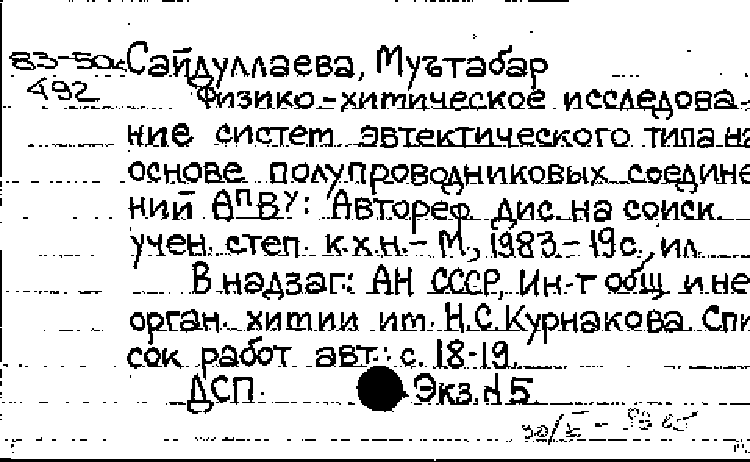 83-50к Сайдуллаева, Муътабар
492 Физико-химическое исследова-
ние систем эвтектического типа на
основе полупроводниковых соедине
ний АᴵᴵВⱽ: Автореф. дис. на соиск.
учен. степ. к.х.н. - М., 1983 - 19с., ил.
В надзаг.: АН СССР, Ин-т общ и не
орган. химии им. Н.С. Курнакова. Спи
сок работ авт.: с. 18-19.
ДСП. Экз. № 5